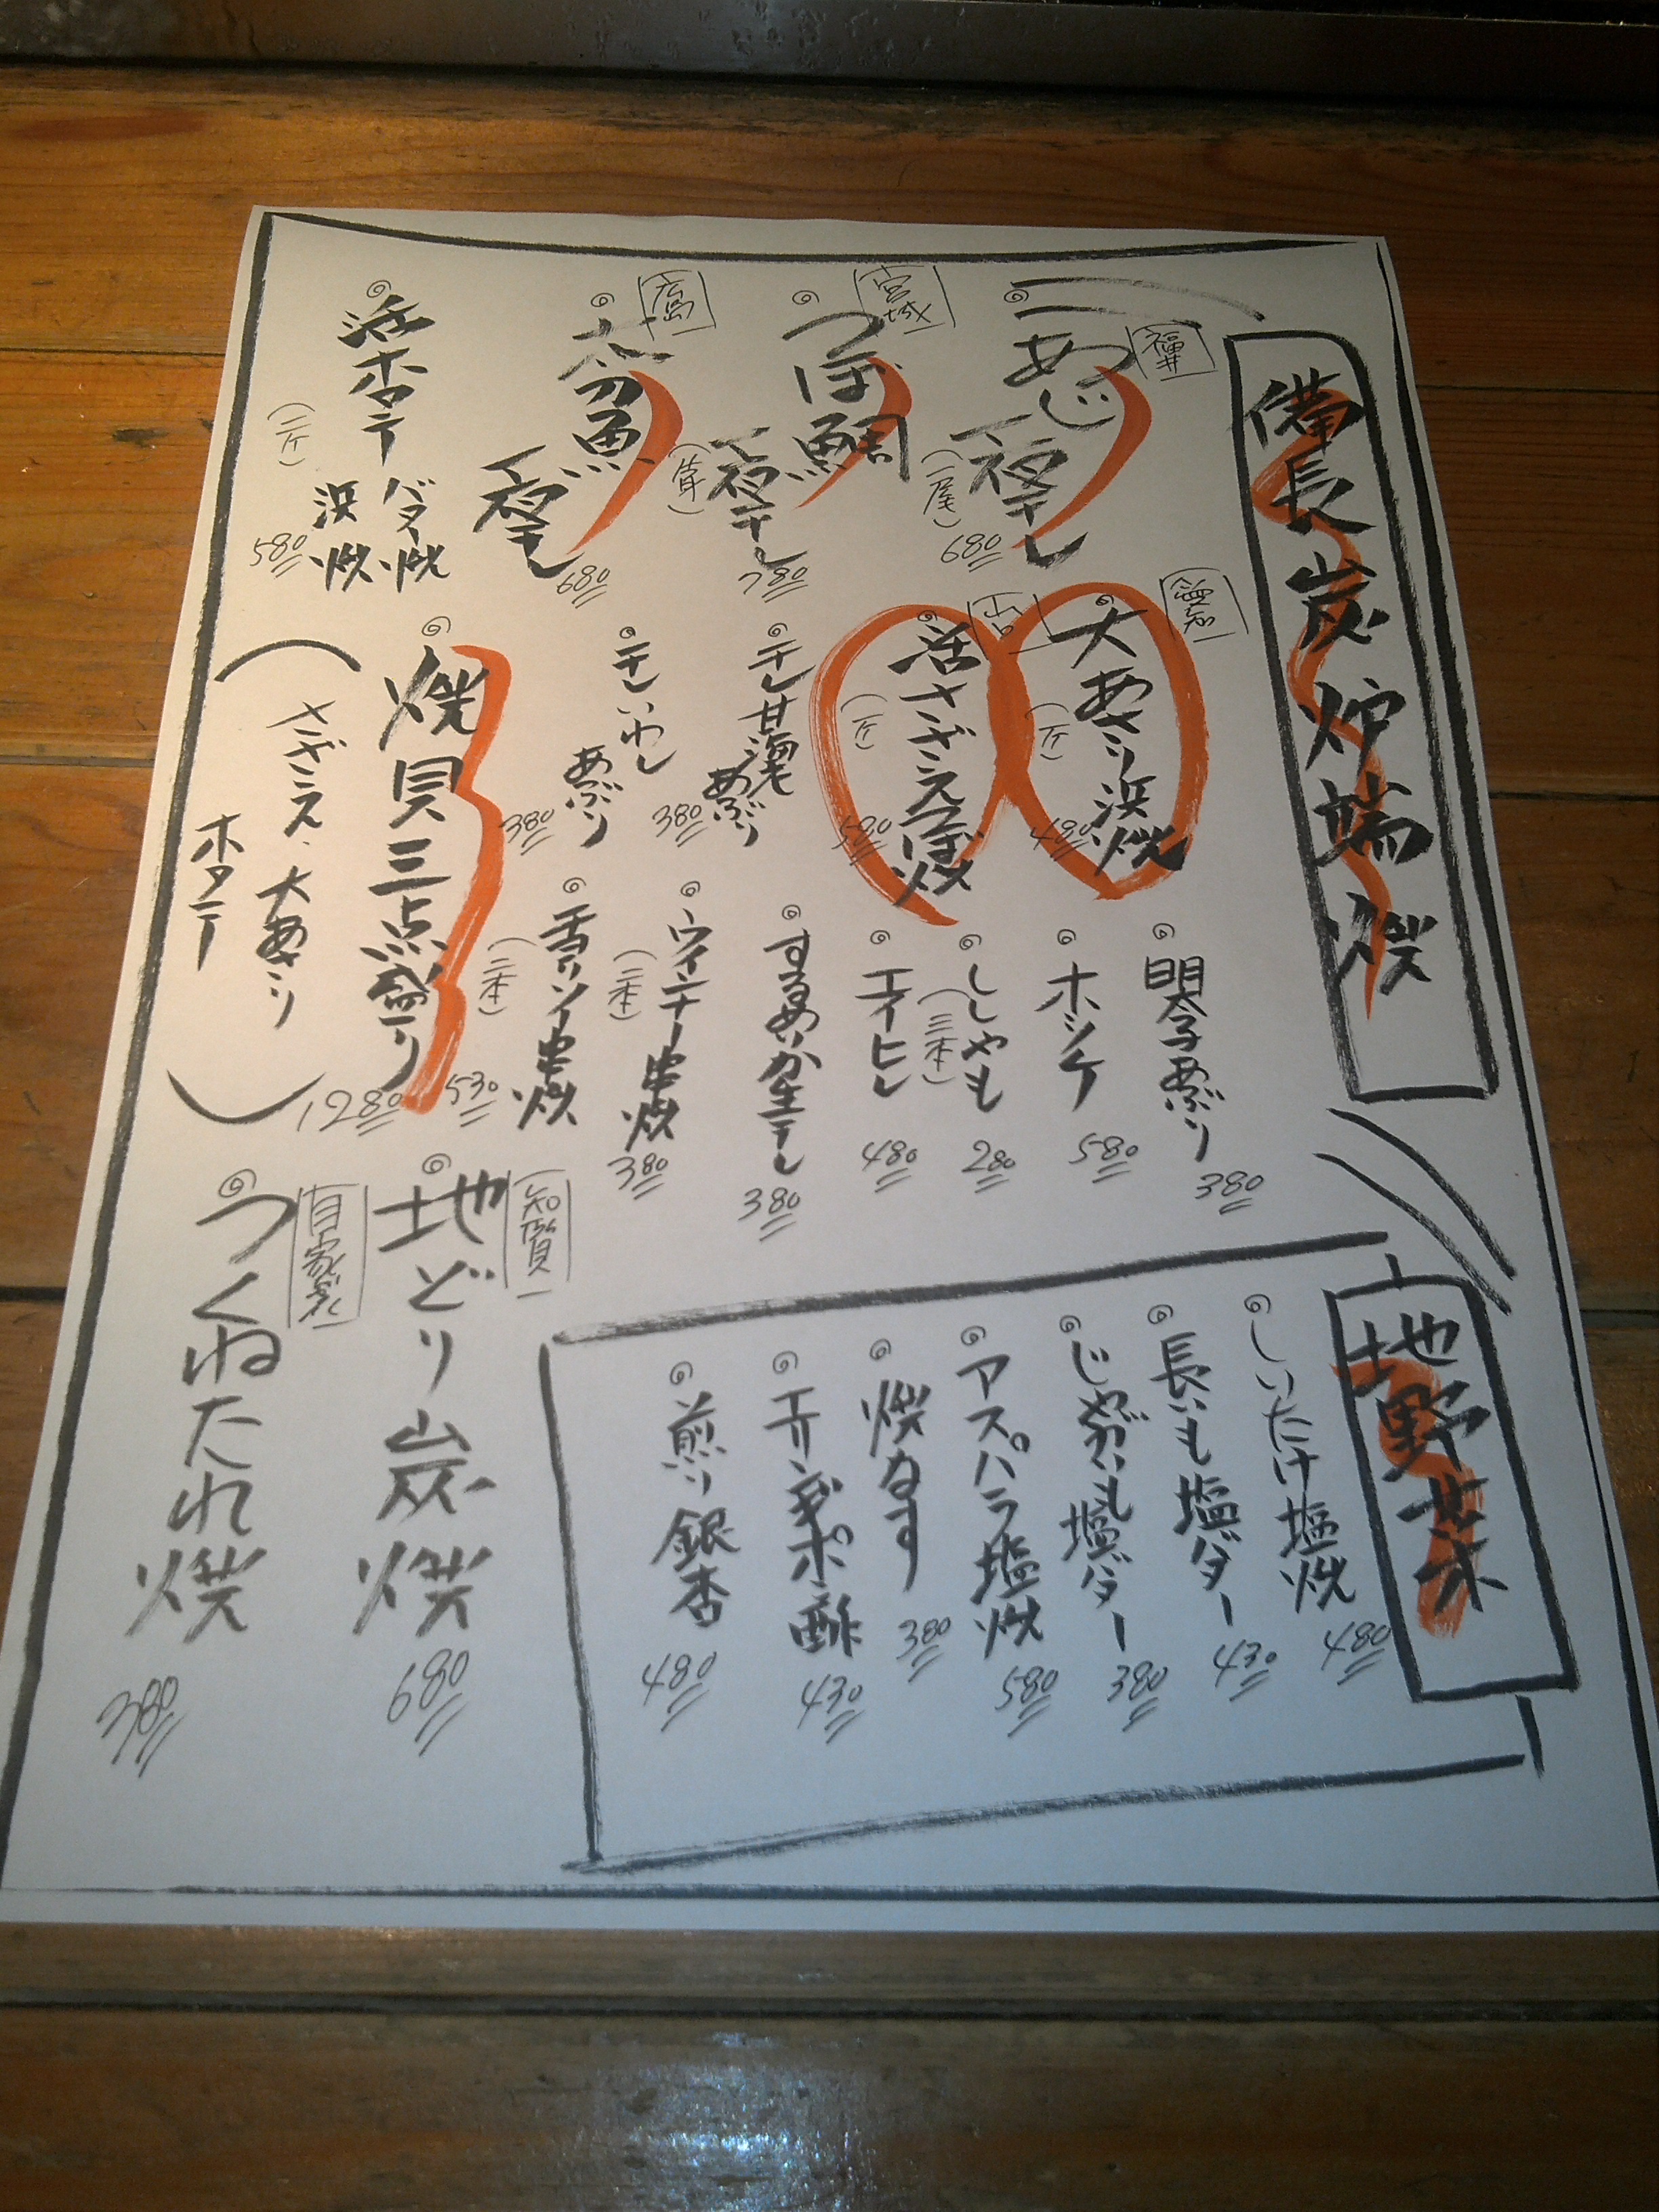 備長炭炉端焼
福井
あじ
一夜干し
(一尾)
680
宮城
つぼ鯛
一夜干し
780
広島
穴魚
一夜干し
680
活ホタテ
バター焼
浜焼
580
愛知
大あさり浜焼
480
活サザエつぼ焼
580
干し甘海老
あぶり
380
干しいわし
あぶり
380
焼貝三点盛り
サザエ、大あさり
ホタテ
1280
明太子あぶり
380
ホッケ
580
ししゃも
(三本)
280
エイヒレ
480
するめいか生干し
380
ウインナー串焼
(二本)
380
チョリソー串焼
(二本)
530
知覧
地どり炭焼
680
自家製
つくねたれ焼
380
地野菜
しいたけ塩焼
480
長いも塩バター
430
じゃがいも塩バター
380
アスパラ塩焼
580
焼なす
380
エリンギポン酢
430
煎り銀杏
480